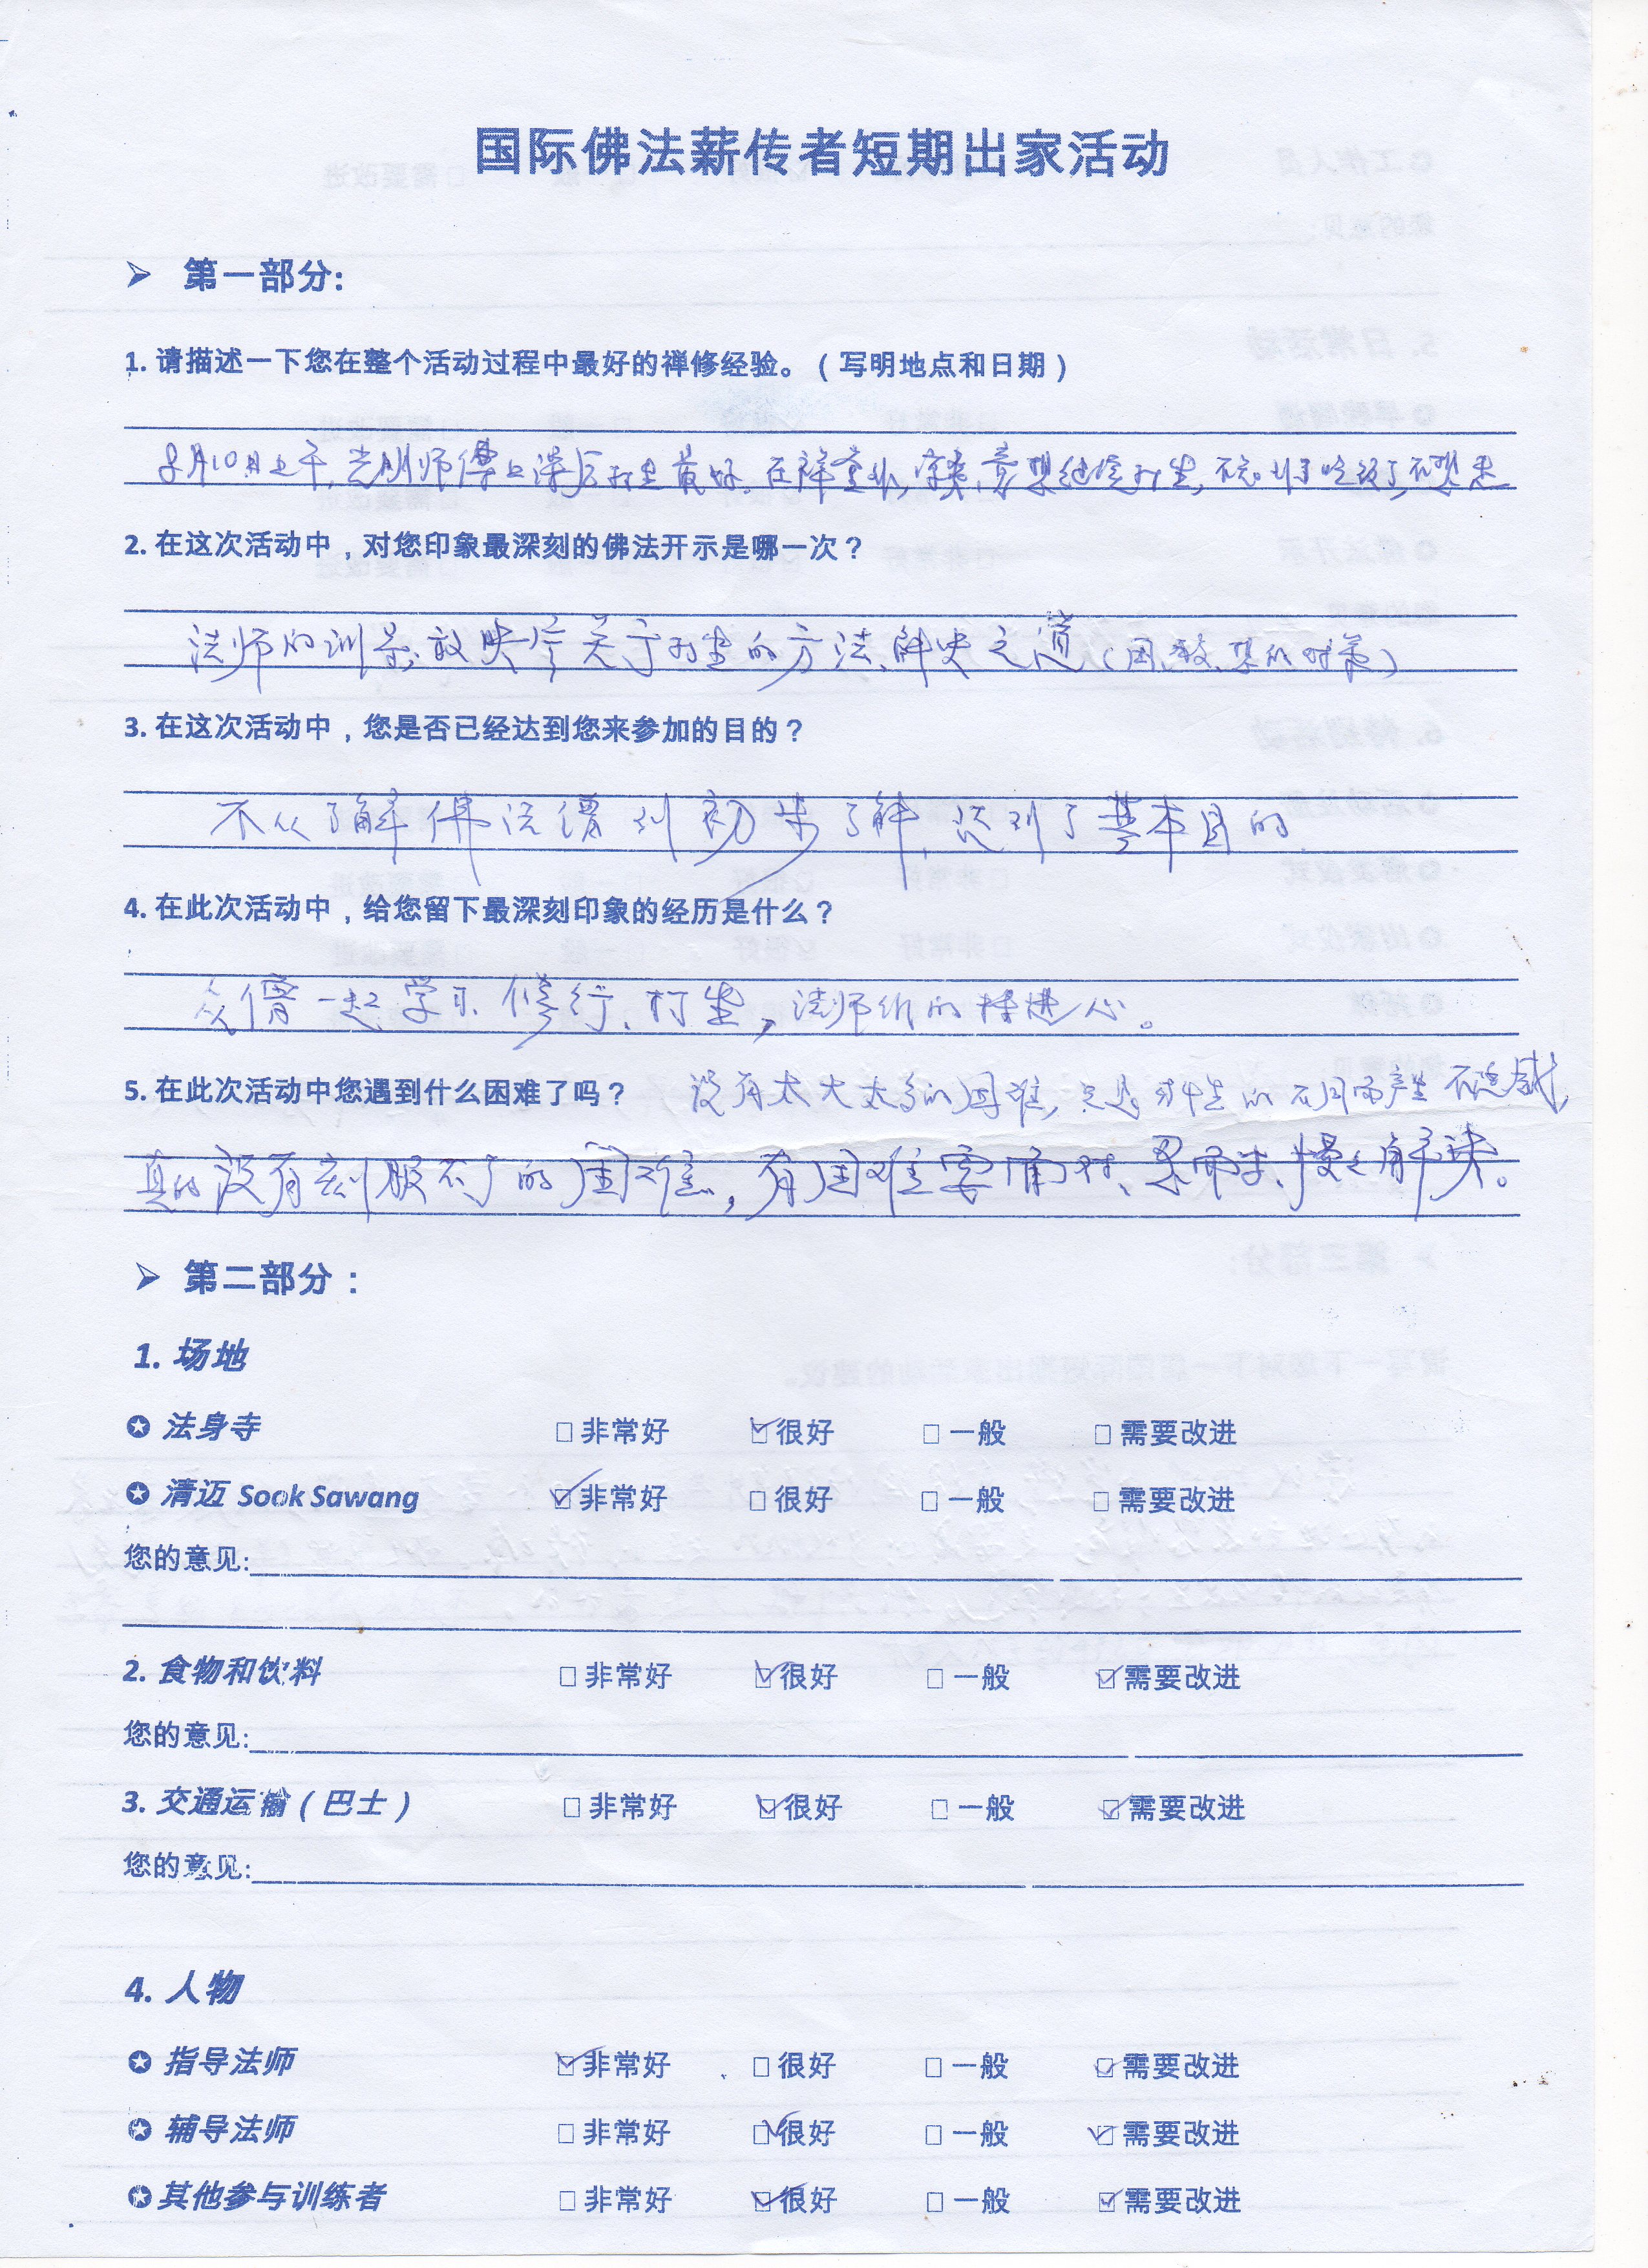 国际佛法薪传者短期出家活动
➢ 第一部分:
1. 请描述一下您在整个活动过程中最好的禅修经验。(写明地点和日期)
8月10日上午,光明师傅上课后打坐最好。在禅堂
2. 在这次活动中,对您印象最深刻的佛法开示是哪一次?
法师的训导,关于打坐的方法、解决之道
3. 在这次活动中,您是否已经达到您来参加的目的?
不从了解佛法僧到初步了解,达到了基本目的
4. 在此次活动中,给您留下最深刻印象的经历是什么?
众僧一起学习、修行、打坐,法师们的精进心。
5. 在此次活动中您遇到什么困难了吗? 没有太大太多的困难,只是
真的没有刻服不了的困难,有困难要面对、忍耐、慢慢解决。
➢ 第二部分:
1. 场地
✪ 法身寺 □非常好 ☑很好 □一般 □需要改进
✪ 清迈 Sook Sawang ☑非常好 □很好 □一般 □需要改进
您的意见:
2. 食物和饮料 □非常好 ☑很好 □一般 ☑需要改进
您的意见:
3. 交通运输(巴士) □非常好 ☑很好 □一般 ☑需要改进
您的意见:
4. 人物
✪ 指导法师 ☑非常好 □很好 □一般 ☑需要改进
✪ 辅导法师 □非常好 ☑很好 □一般 ☑需要改进
✪ 其他参与训练者 □非常好 ☑很好 □一般 ☑需要改进